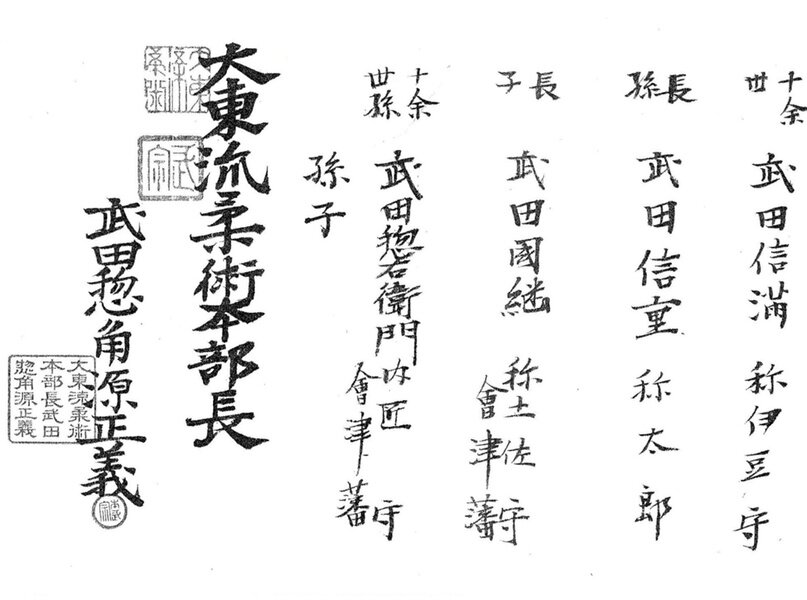 十余世 武田信満 称伊豆守
長孫 武田信重 称太郎
長子 武田國継 称土佐守
會津藩
十余世孫 武田惣右衛門 内匠守
會津藩
孫子
大東流柔術本部長
武田惣角源正義
大東流柔術
本部長武田
惣角源正義